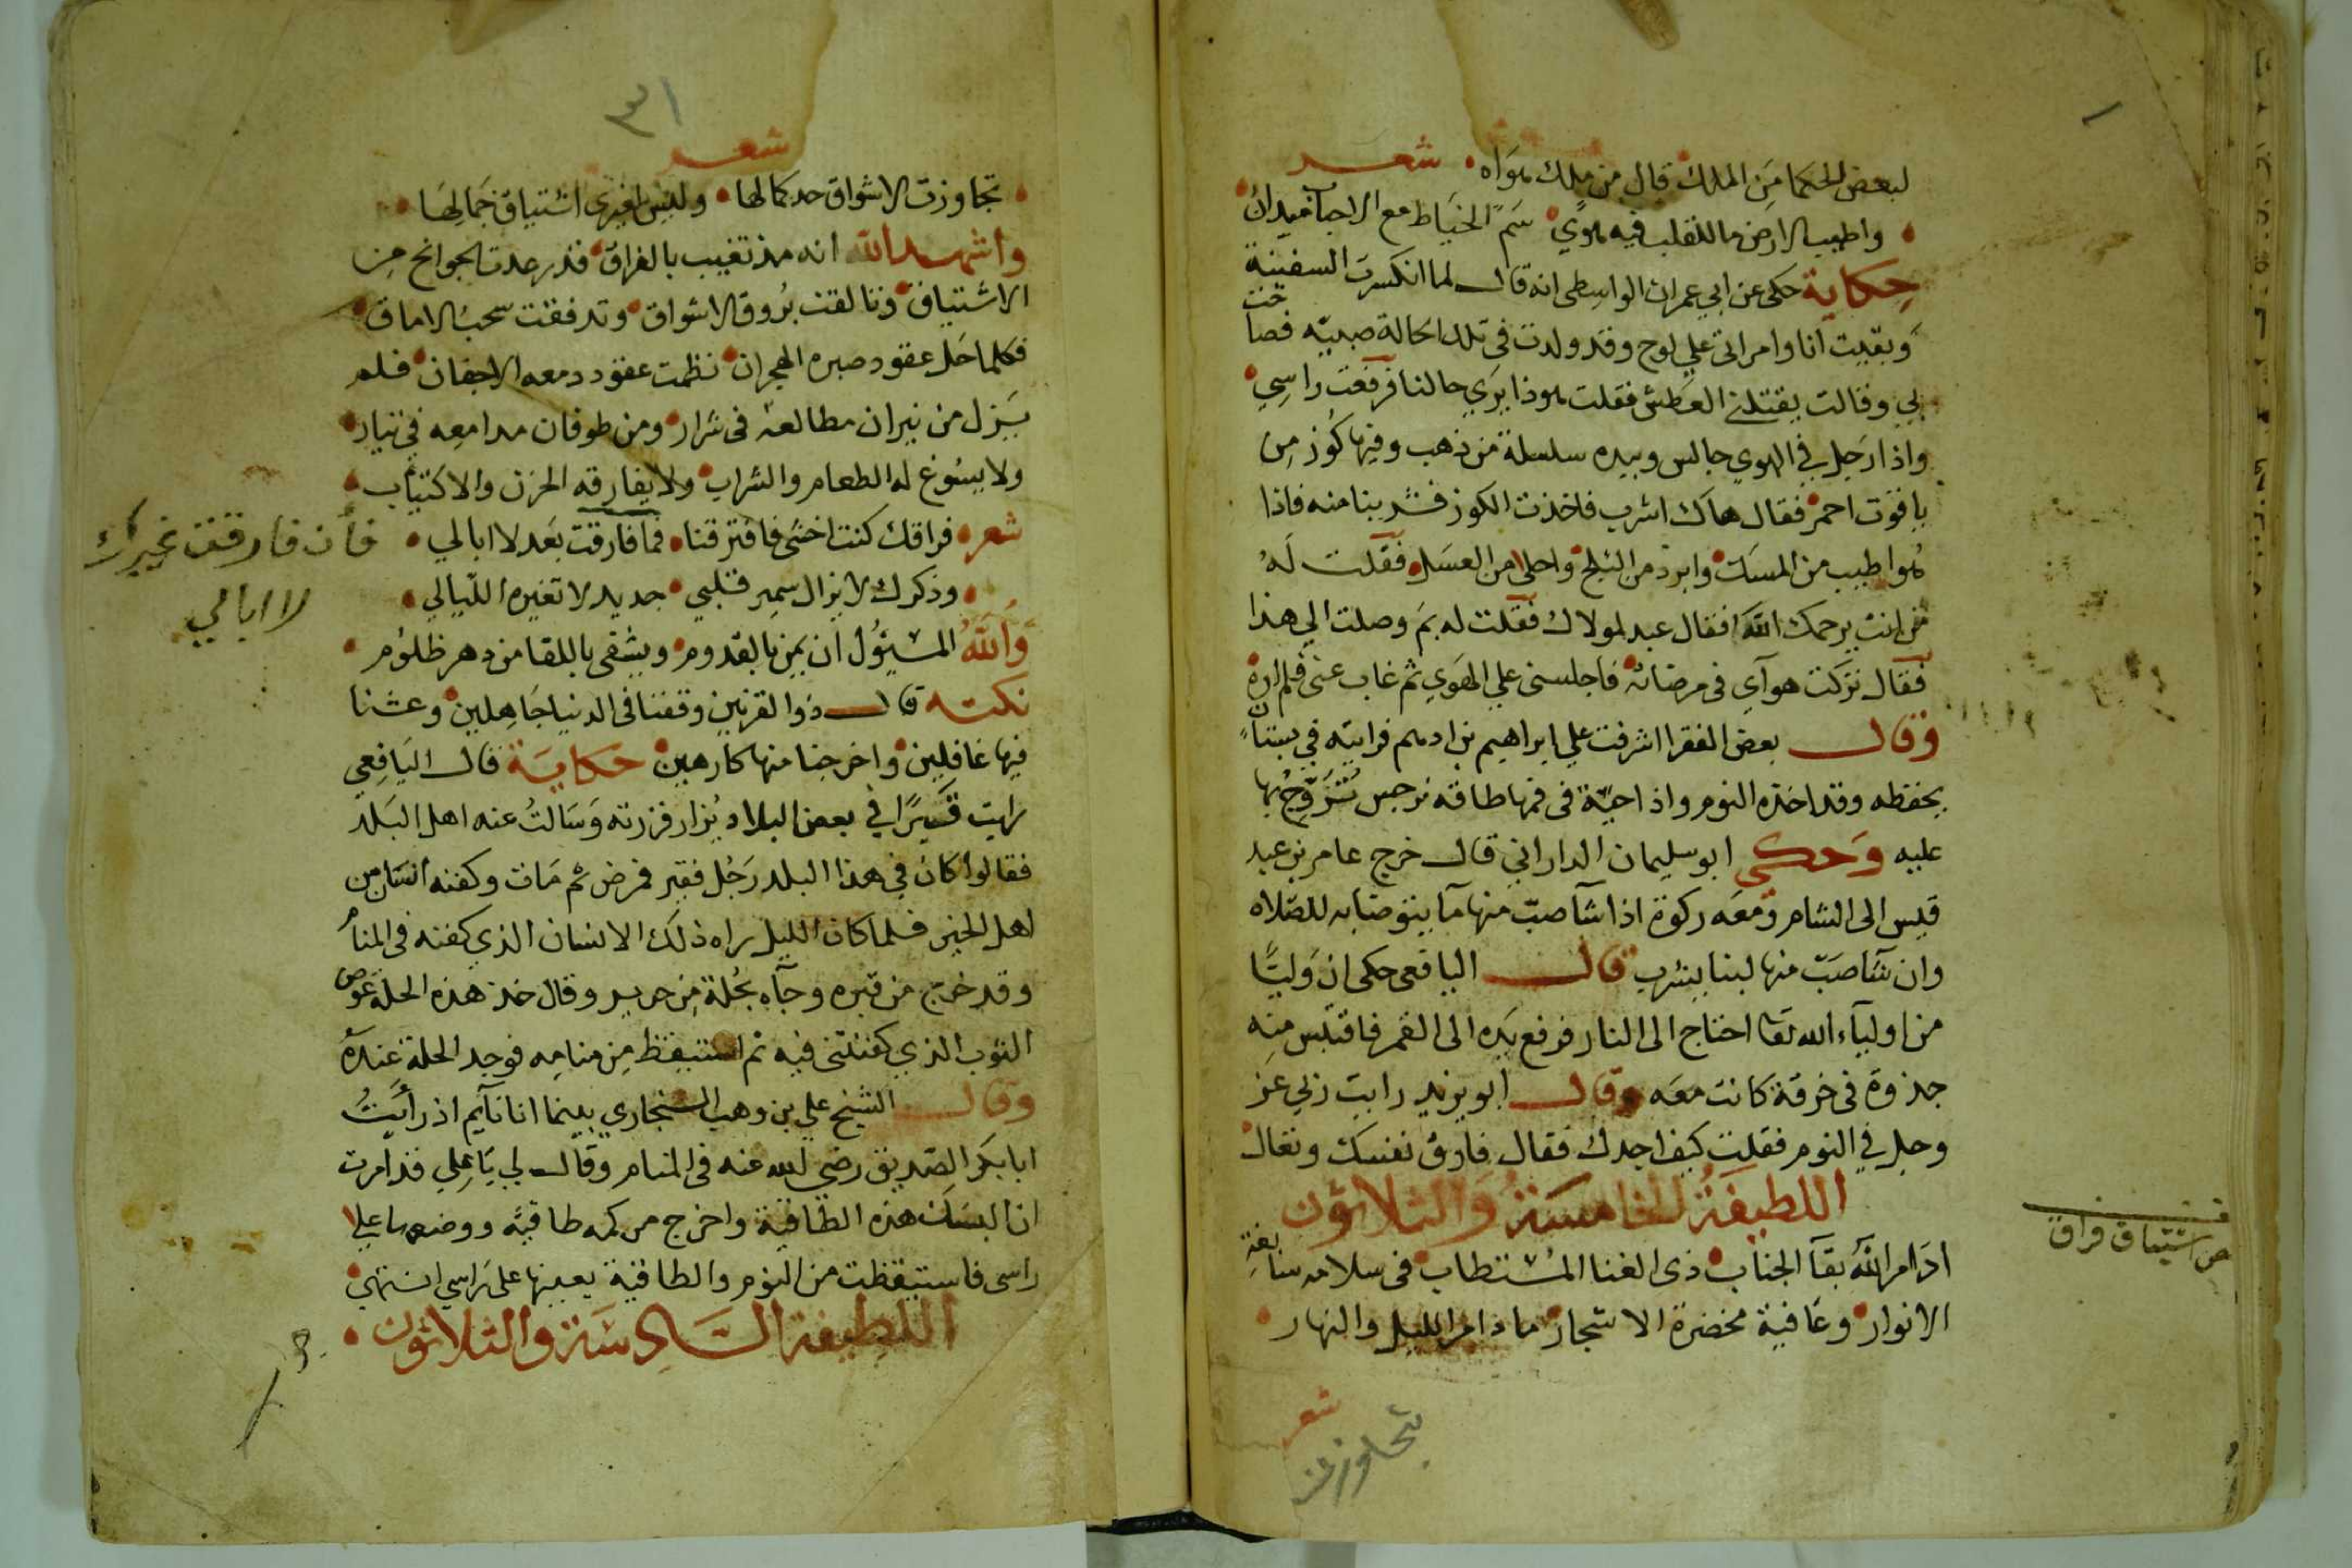 لبعض الحكما من الملك قال من ملك هواه شعر
واطيب الارض ما للقلب فيه هوي سم الخياط مع الاحباب ميدان
حكاية حكى عن ابي عمران الواسطى انه قال لما انكسرت السفينة
وبقيت انا وامراتى علي لوح وقد ولدت فى تلك الحالة صبيه فصاحت
بي وقالت يقتلنى العطش فقلت هوذا يري حالنا فرفعت راسي
واذا رجل في الهوي جالس وبيده سلسلة من ذهب وفيها كوز من
ياقوت احمر فقال هاك اشرب فاخذت الكوز فشربنا منه فاذا
هو اطيب من المسك وابرد من الثلج واحلا من العسل فقلت له
من انت يرحمك الله فقال عبد لمولاك فقلت له بم وصلت الي هذا
فقال تركت هوآي فى مرضاته فاجلسنى علي الهوي ثم غاب عنى فلم اره
وقال بعض الفقرا اشرفت علي ابراهيم بن ادهم فرايته في بستان
يحفظه وقد اخذه النوم واذا حية فى فمها طاقه نرجس تتروح بها
عليه وحكى ابو سليمان الداراني قال خرج عامر بن عبد
قيس الى الشام ومعه ركوة اذا شآ صب منها مآ يتوضا به للصلاه
وان شآ صب منها لبنا يشرب قال اليافعى حكى ان وليا
من اوليآء الله تعا احتاج الى النار فرفع يده الى القمر فاقتبس منه
جذوة فى خرقة كانت معه وقال ابو يزيد رايت ربي عز
وجل في النوم فقلت كيف اجدك فقال فارق نفسك وتعال
اللطيفة الخامسة والثلاثون
ادام الله بقآ الجناب ذى الغنا المستطاب فى سلامه سابغة
الانوار وعافية مخضرة الاشجار ما دام الليل والنهار
شعر
تجاوزت
اشتياق فراق
٣١
شعر
تجاوزت الاشواق حد كمالها وليس لغيرى اشتياق جمالها
واشهد الله انه مذ تغيب بالفراق قد رعدت الجوانح من
الاشتياق وتالقت بروق الاشواق وتدفقت سحب الاماق
فكلما حل عقود صبره الهجران نظمت عقود دمعه الاجفان فلم
يزل من نيران مطالعه فى شرار ومن طوفان مدامعه في تيار
ولا يسوغ له الطعام والشراب ولا يفارقه الحزن والاكتياب
شعر فراقك كنت اخشى فافترقنا فما فارقت بعد لا ابالي
فأن فارقت غيرك
لا ابالي
وذكرك لا يزال سمير قلبي جديد لا تغيره الليالي
والله المسئول ان يمن بالقدوم ويشفى باللقا من دهر ظلوم
نكته قال ذوا القرنين وقفنا فى الدنيا جاهلين وعشنا
فيها غافلين واخرجنا منها كارهين حكاية قال اليافعى
رايت قبرا في بعض البلاد يزار فزرته وسالت عنه اهل البلد
فقالوا كان في هذا البلد رجل فقير فمرض ثم مات وكفنه انسان من
اهل الخير فلما كان الليل راه ذلك الانسان الذي كفنه فى المنام
وقد خرج من قبره وجآه بحلة من حرير وقال خذ هذه الحلة عوض
الثوب الذي كفنتنى فيه ثم استيقظ من منامه فوجد الحلة عنده
وقال الشيخ علي بن وهب السنجاري بينما انا نآيم اذ رأيت
ابا بكر الصديق رضي الله عنه فى المنام وقال لي يا علي قد امرت
ان البسك هذه الطاقية واخرج من كمه طاقية ووضعها علا
راسى فاستيقظت من النوم والطاقية بعينها على راسي انتهي
اللطيفة السادسة والثلاثون